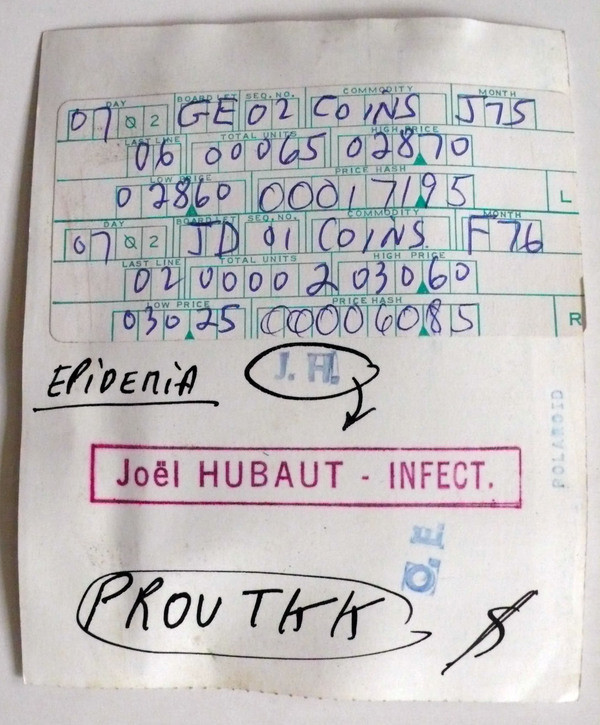 DAY BOARD LET SEQ. NO. COMMODITY MONTH
07 02 GE 02 COINS J75
LAST LINE TOTAL UNITS HIGH PRICE
06 00065 02870
LOW PRICE PRICE HASH
02860 00017195 L
DAY BOARD LET SEQ. NO. COMMODITY MONTH
07 02 JD 01 COINS. F76
LAST LINE TOTAL UNITS HIGH PRICE
02 00002 03060
LOW PRICE PRICE HASH
03025 00006085 R
EPiDEMiA J. H.
POLAROID
Joël HUBAUT - INFECT.
O. E.
PROUTKK